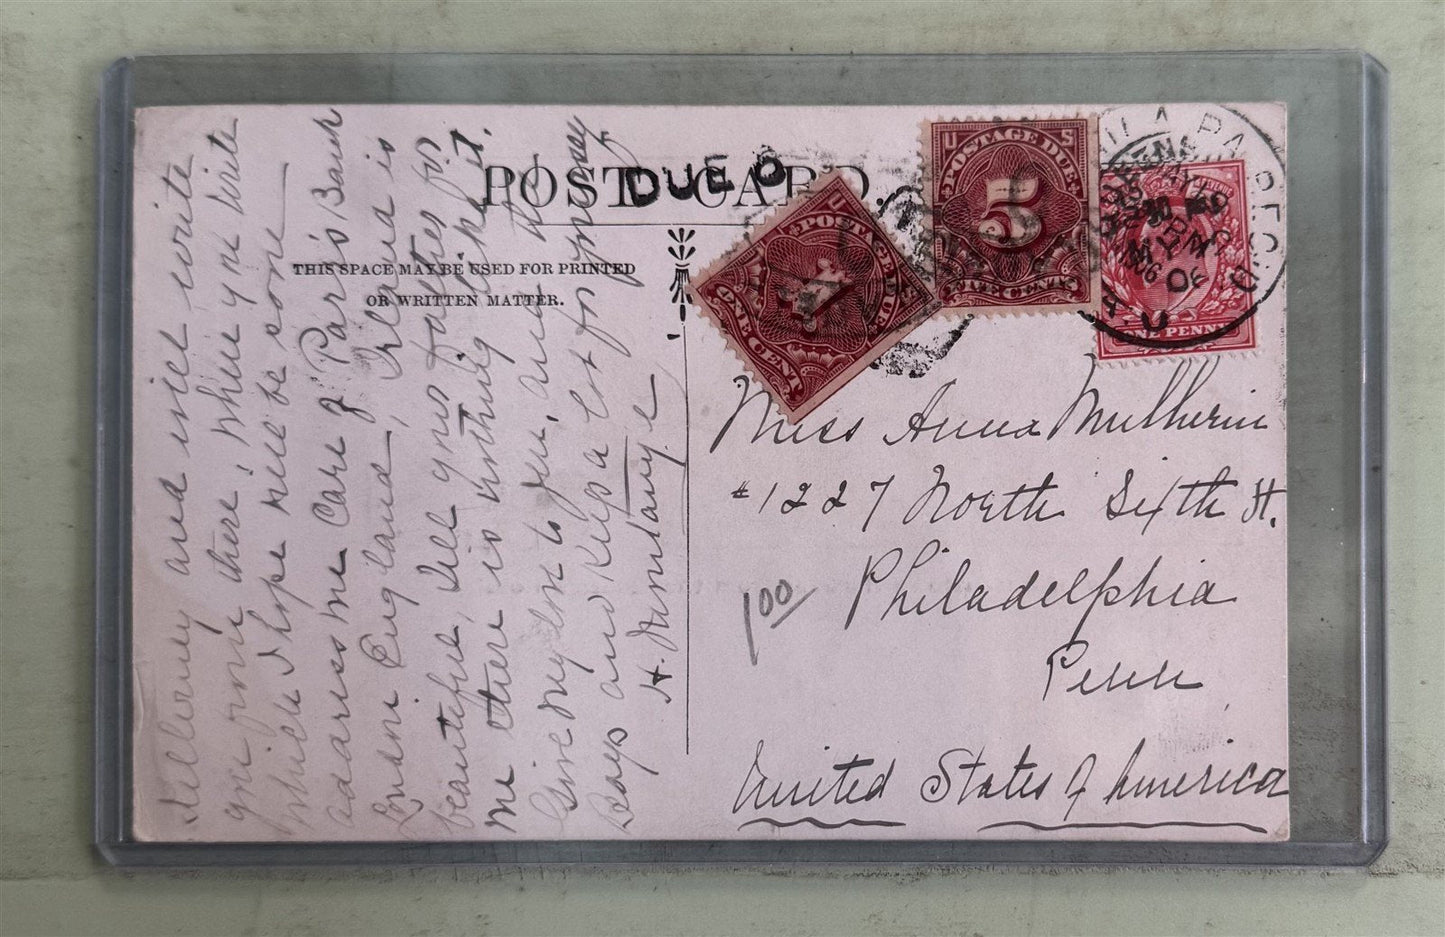 POST CARD.
DUE 6
THIS SPACE MAY BE USED FOR PRINTED
OR WRITTEN MATTER.
U S
POSTAGE DUE
5
FIVE CENTS
U
POSTAGE DUE
1
ONE CENT
ONE PENNY
PHILA PA
1906
Miss Anna Mulherin
#1227 North Sixth St.
Philadelphia
Penn
United States of America
1 00
and will write
you from there, when you write
which I hope will be soon
address me Care of Parr's Bank
England, Ireland is
beautiful, tell your father for
me there is nothing like it.
Give my love to you, and the
Boys and Keep a lot for
H.